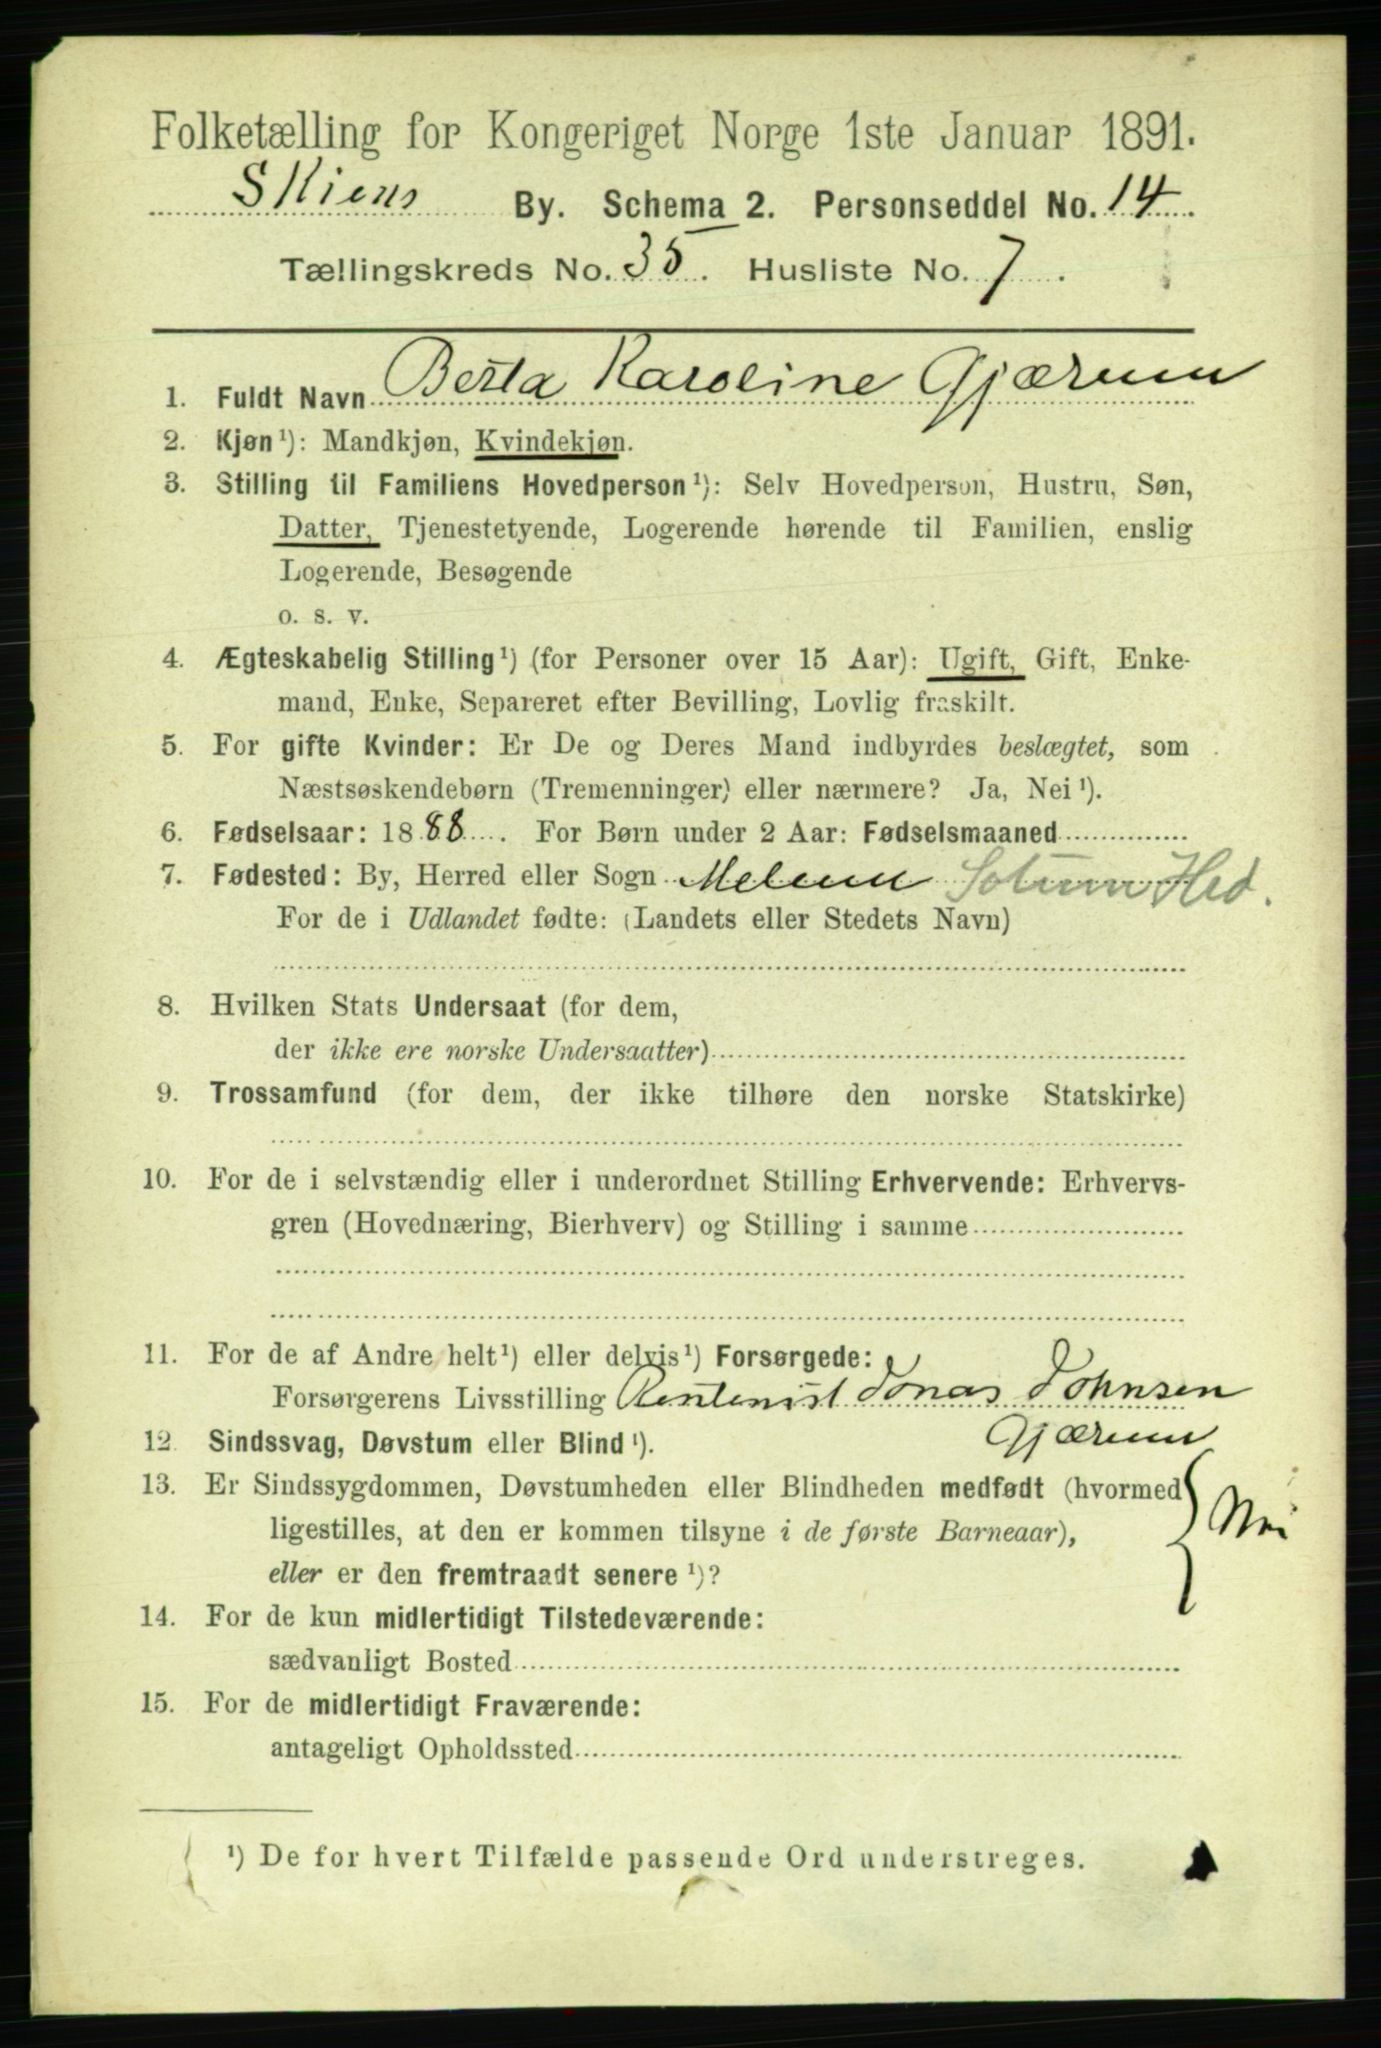 Folketælling for Kongeriget Norge 1ste Januar 1891.
Skiens By. Schema 2. Personseddel No. 14
Tællingskreds No. 35. Husliste No. 7.
1. Fuldt Navn Berta Karoline Gjærum
2. Kjøn¹): Mandkjøn, Kvindekjøn.
3. Stilling til Familiens Hovedperson¹): Selv Hovedperson, Hustru, Søn,
Datter, Tjenestetyende, Logerende hørende til Familien, enslig
Logerende, Besøgende
o. s. v.
4. Ægteskabelig Stilling¹) (for Personer over 15 Aar): Ugift, Gift, Enke-
mand, Enke, Separeret efter Bevilling, Lovlig fraskilt.
5. For gifte Kvinder: Er De og Deres Mand indbyrdes beslægtet, som
Næstsøskendebørn (Tremenninger) eller nærmere? Ja, Nei¹).
6. Fødselsaar: 1888. For Børn under 2 Aar: Fødselsmaaned
7. Fødested: By, Herred eller Sogn Melum Solum Hrd.
For de i Udlandet fødte: (Landets eller Stedets Navn)
8. Hvilken Stats Undersaat (for dem,
der ikke ere norske Undersaatter)
9. Trossamfund (for dem, der ikke tilhøre den norske Statskirke)
10. For de i selvstændig eller i underordnet Stilling Erhvervende: Erhvervs-
gren (Hovednæring, Bierhverv) og Stilling i samme
11. For de af Andre helt¹) eller delvis¹) Forsørgede:
Forsørgerens Livsstilling Rentenist Jonas Johnsen
Gjærum
12. Sindssvag, Døvstum eller Blind¹).
13. Er Sindssygdommen, Døvstumheden eller Blindheden medfødt (hvormed
ligestilles, at den er kommen tilsyne i de første Barneaar),
eller er den fremtraadt senere¹)?
Nei
14. For de kun midlertidigt Tilstedeværende:
sædvanligt Bosted
15. For de midlertidigt Fraværende:
antageligt Opholdssted
¹) De for hvert Tilfælde passende Ord understreges.